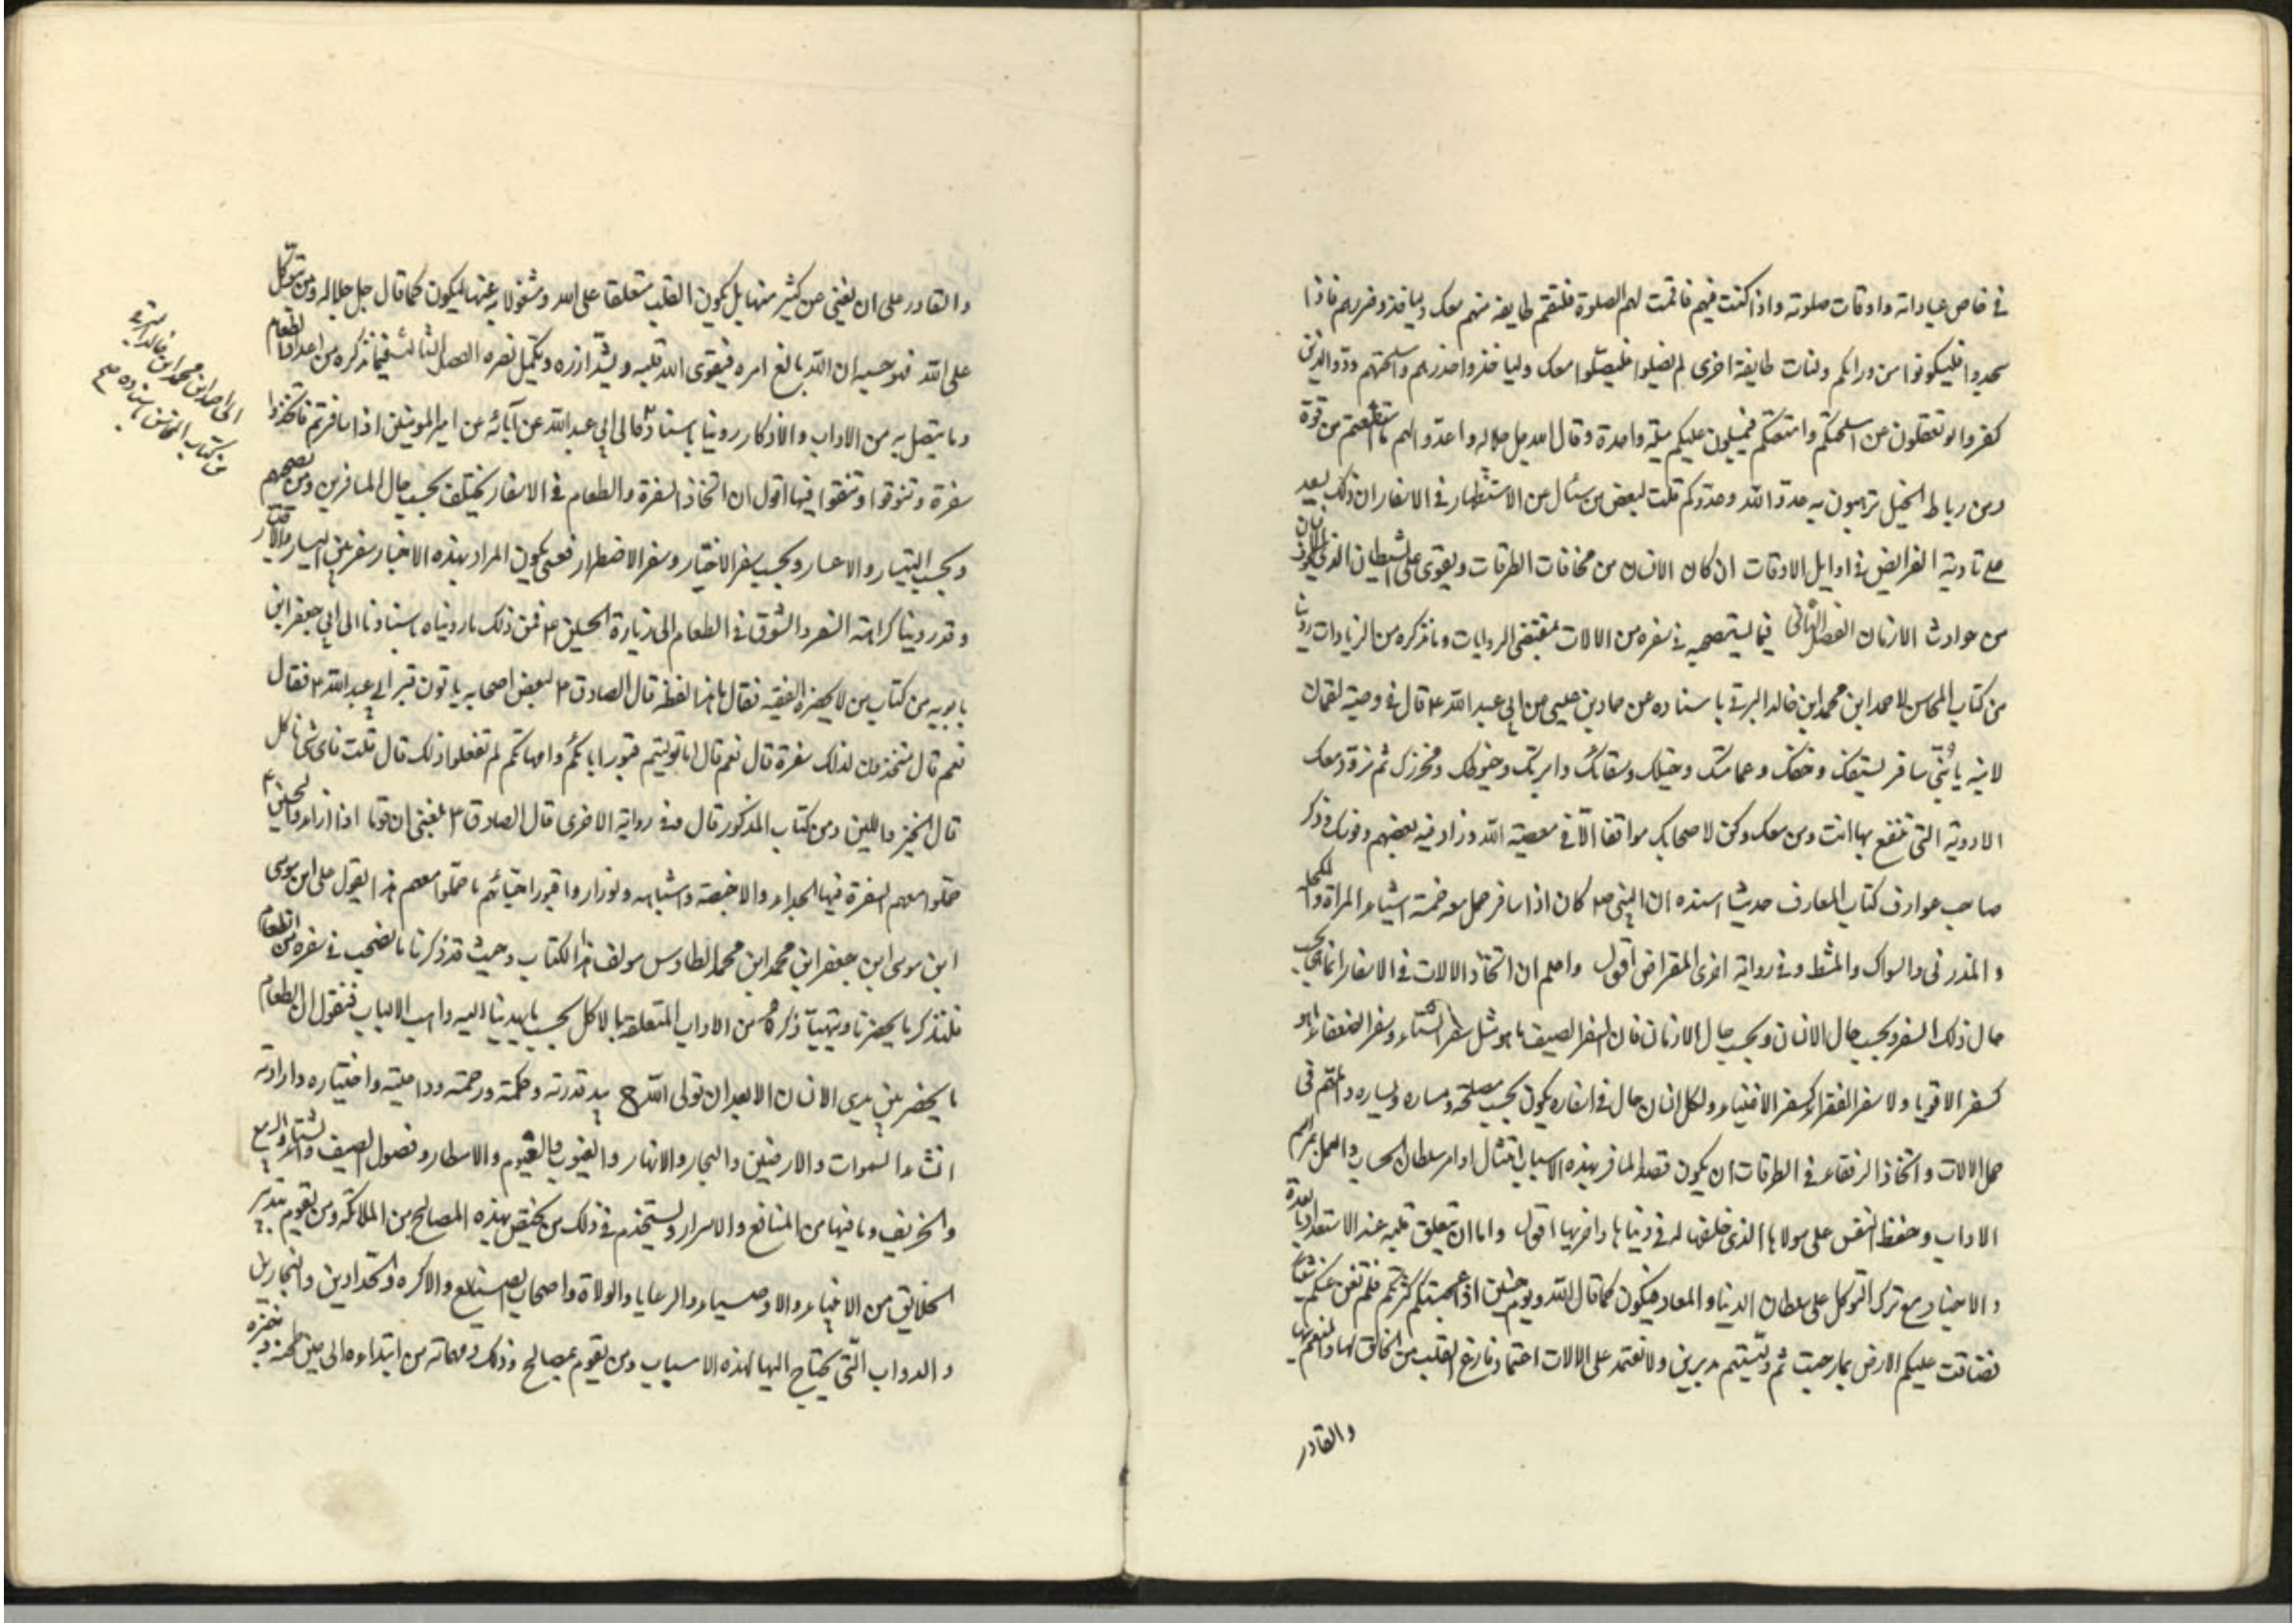 في خاص عباداته واوقات صلوته واذا كنت فيهم فاقمت لهم الصلوة فلتقم طايفة منهم معك وليأخذوا حذرهم فاذا
سجدوا فليكونوا من ورائكم ولتات طايفة اخرى لم يصلوا فليصلوا معك وليأخذوا حذرهم واسلحتهم ود الذين
كفروا لو تغفلون عن اسلحتكم وامتعتكم فيميلون عليكم ميلة واحدة وقال الله جل جلاله واعدوا لهم ما استطعتم من قوة
ومن رباط الخيل ترهبون به عدو الله وعدوكم قلت لبعض من سئال عن الاستظهار في الاسفار ان ذلك يعيد
على تادية الفرايض في اوايل الاوقات ان كان الانسان من مخافات الطرقات ويقوى على الشيطان الذي
من حوادث الازمان الفصل الثاني فيما يستصحبه في سفره من الالات بمقتضى الروايات وما نذكره من الزيادات روينا
من كتاب المحاسن لاحمد ابن محمد ابن خالد البرقي باسناده عن حماد بن عيسى عن ابي عبد الله ع قال في وصية لقمان
لابنه يا بني سافر بسيفك وخفك وعمامتك وخبائك وسقائك وابرتك وخيوطك ومخرزك ثم تزود معك
الادوية التي تنتفع بها انت ومن معك وكن لاصحابك موافقا الا في معصية الله وزاد فيه بعضهم وفرسك وذكر
صاحب عوارف كتاب المعارف حديثا اسنده ان النبي ص كان اذا سافر حمل معه خمسة اشياء المراة والمكحلة
والمذري والسواك والمشط وفي رواية اخرى المقراض اقول واعلم ان اتخاذ الالات في الاسفار انما هي بحسب
حال ذلك السفر وبحسب حال الانسان وبحسب حال الازمان فان السفر الصيف ما هو مثل سفر الشتاء وسفر الضعفاء ما هو
كسفر الاقويا ولا سفر الفقراء كسفر الاغنياء ولكل انسان حال في اسفاره يكون بحسب مصلحته ومساره ويساره والمهم في
حمل الالات واتخاذ الرفقاء في الطرقات ان يكون قصد المسافر بهذه الاسباب امتثال اوامر سلطان الحساب والعمل بمراسم
الاداب وحفظ النفس على مولاها الذي خلقها له في دنياها واخريها اقول واما ان يتعلق قلبه عند الاستعداد بالعدة
والاجناد مع ترك التوكل على سلطان الدنيا والمعاد فيكون كما قال الله ويوم حنين اذ اعجبتكم كثرتكم فلم تغن عنكم شيئا
فضاقت عليكم الارض بما رحبت ثم وليتم مدبرين ولا تعتمد على الالات اعتماد فارغ القلب من الخالق لها والمنعم بها
والقادر
والقادر على ان يغني عن كثير منها بل يكون القلب متعلقا على الله ومشغولا به عنها ليكون كما قال جل جلاله ومن يتوكل
على الله فهو حسبه ان الله بالغ امره فيقوى الله قلبه ويشد ازره ويكمل نصره الفصل الثالث فيما نذكره من اعداد الطعام
وما يتصل به من الاداب والاذكار روينا باسنادنا الى ابي عبد الله عن آبائه عن امير المومنين اذا سافرتم فاتخذوا
سفرة وتنوقوا فيها اقول ان اتخاذ السفرة والطعام في الاسفار يختلف بحسب حال المسافرين ومن يصحبهم
وبحسب اليسار والاعسار وبحسب سفر الاختيار وسفر الاضطرار فعسى يكون المراد بهذه الاخبار سفر من اليسار والاقتدار
وقد روينا كراهة السفر والتنوق في الطعام الى زيارة الحسين ع فمن ذلك ما رويناه باسنادنا الى ابي جعفر ابن
بابويه من كتاب من لا يحضره الفقيه فقال ما هذا لفظه قال الصادق ع لبعض اصحابه ياتون قبر ابي عبد الله ع فقال
نعم قال تتخذون لذلك سفرة قال نعم قال اما لو اتيتم قبور ابائكم وامهاتكم لم تفعلوا ذلك قال قلت فاي شئ ناكل
قال الخبز واللبن ومن كتاب المذكور قال وفي رواية الاخرى قال الصادق ع بلغني ان قوما اذا زاروا الحسين ع
حملوا معهم السفرة فيها الجداء والاخبصة واشباهه ولو زاروا قبور احبائهم ما حملوا معهم هذا يقول علي ابن موسى
ابن موسى ابن جعفر ابن محمد ابن محمد الطاوس مولف هذا الكتاب وحيث قد ذكرنا ما يصحب في سفره من الطعام
فلنذكر ما يحضرنا ويتهيأ ذكره من الاداب المتعلقة بالاكل بحسب ما يهدينا اليه واهب الالباب فنقول ان الطعام
ما يحضر بين يدي الانسان الا بعد ان تولى الله ج يد قدرته وحكمته ورحمته وداعيته واختياره وارادته
انشاء السموات والارضين والبحار والانهار والغيوب والغيوم والامطار وفصول الصيف والشتاء والربيع
والخريف وما فيها من المنافع والاسرار ويستخدم في ذلك من يختص بهذه المصالح من الملائكة ومن يقوم بتدبير
الخلايق من الانبياء والاوصياء والرعايا والولاة واصحاب الصنايع والاكره والحدادين والنجارين
والدواب التي يحتاج اليها لهذه الاسباب ومن يقوم بمصالح وذلك ومهماته من ابتداءه الى حين طحنه وخبزه
الى احمد ابن محمد ابن خالد البرقي
من كتاب المحاسن باسناده صح